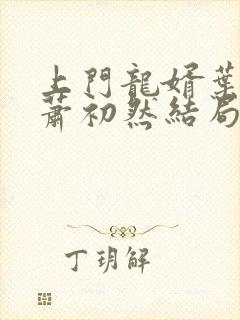 上門龍婿葉
蕭初然結局
丁玥解